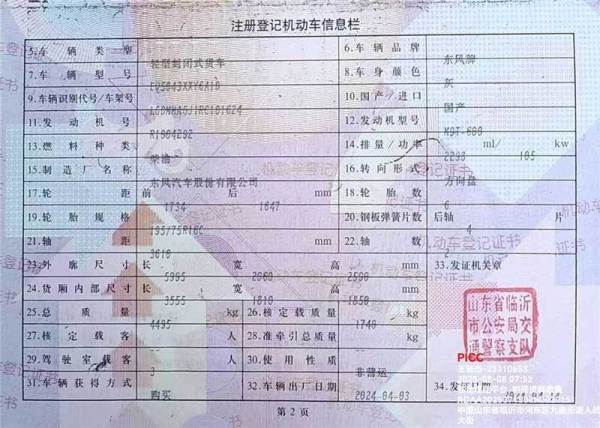 注册登记机动车信息栏
5.车辆类型 轻型封闭式货车 6.车辆品牌 东风牌
7.车辆型号 8.车身颜色 灰
9.车辆识别代号/车架号 10.国产/进口 国产
11.发动机号 R1004292 12.发动机型号
13.燃料种类 柴油 14.排量/功率 2298 ml/ 105 kw
15.制造厂名称 东风汽车股份有限公司 16.转向形式 方向盘
17.轮距 前 1734 后 1647 mm 18.轮胎数 6
19.轮胎规格 195/75R16C 20.钢板弹簧片数 后轴 4 片
21.轴距 3610 mm 22.轴数 2
23.外廓尺寸 长 5995 宽 高 mm 33.发证机关章
24.货厢内部尺寸 长 3555 宽 1810 高 1850 mm
25.总质量 4495 kg 26.核定载质量 1740 kg
27.核定载客 人 28.准牵引总质量 kg
29.驾驶室载客 3 人 30.使用性质 非营运
31.车辆获得方式 购买 32.车辆出厂日期 2024-04-03 34.发证日期 2024-04-14
第2页
山东省临沂
市公安局交
通警察支队
PICC
中国山东省临沂市河东区九曲街道人民
大街